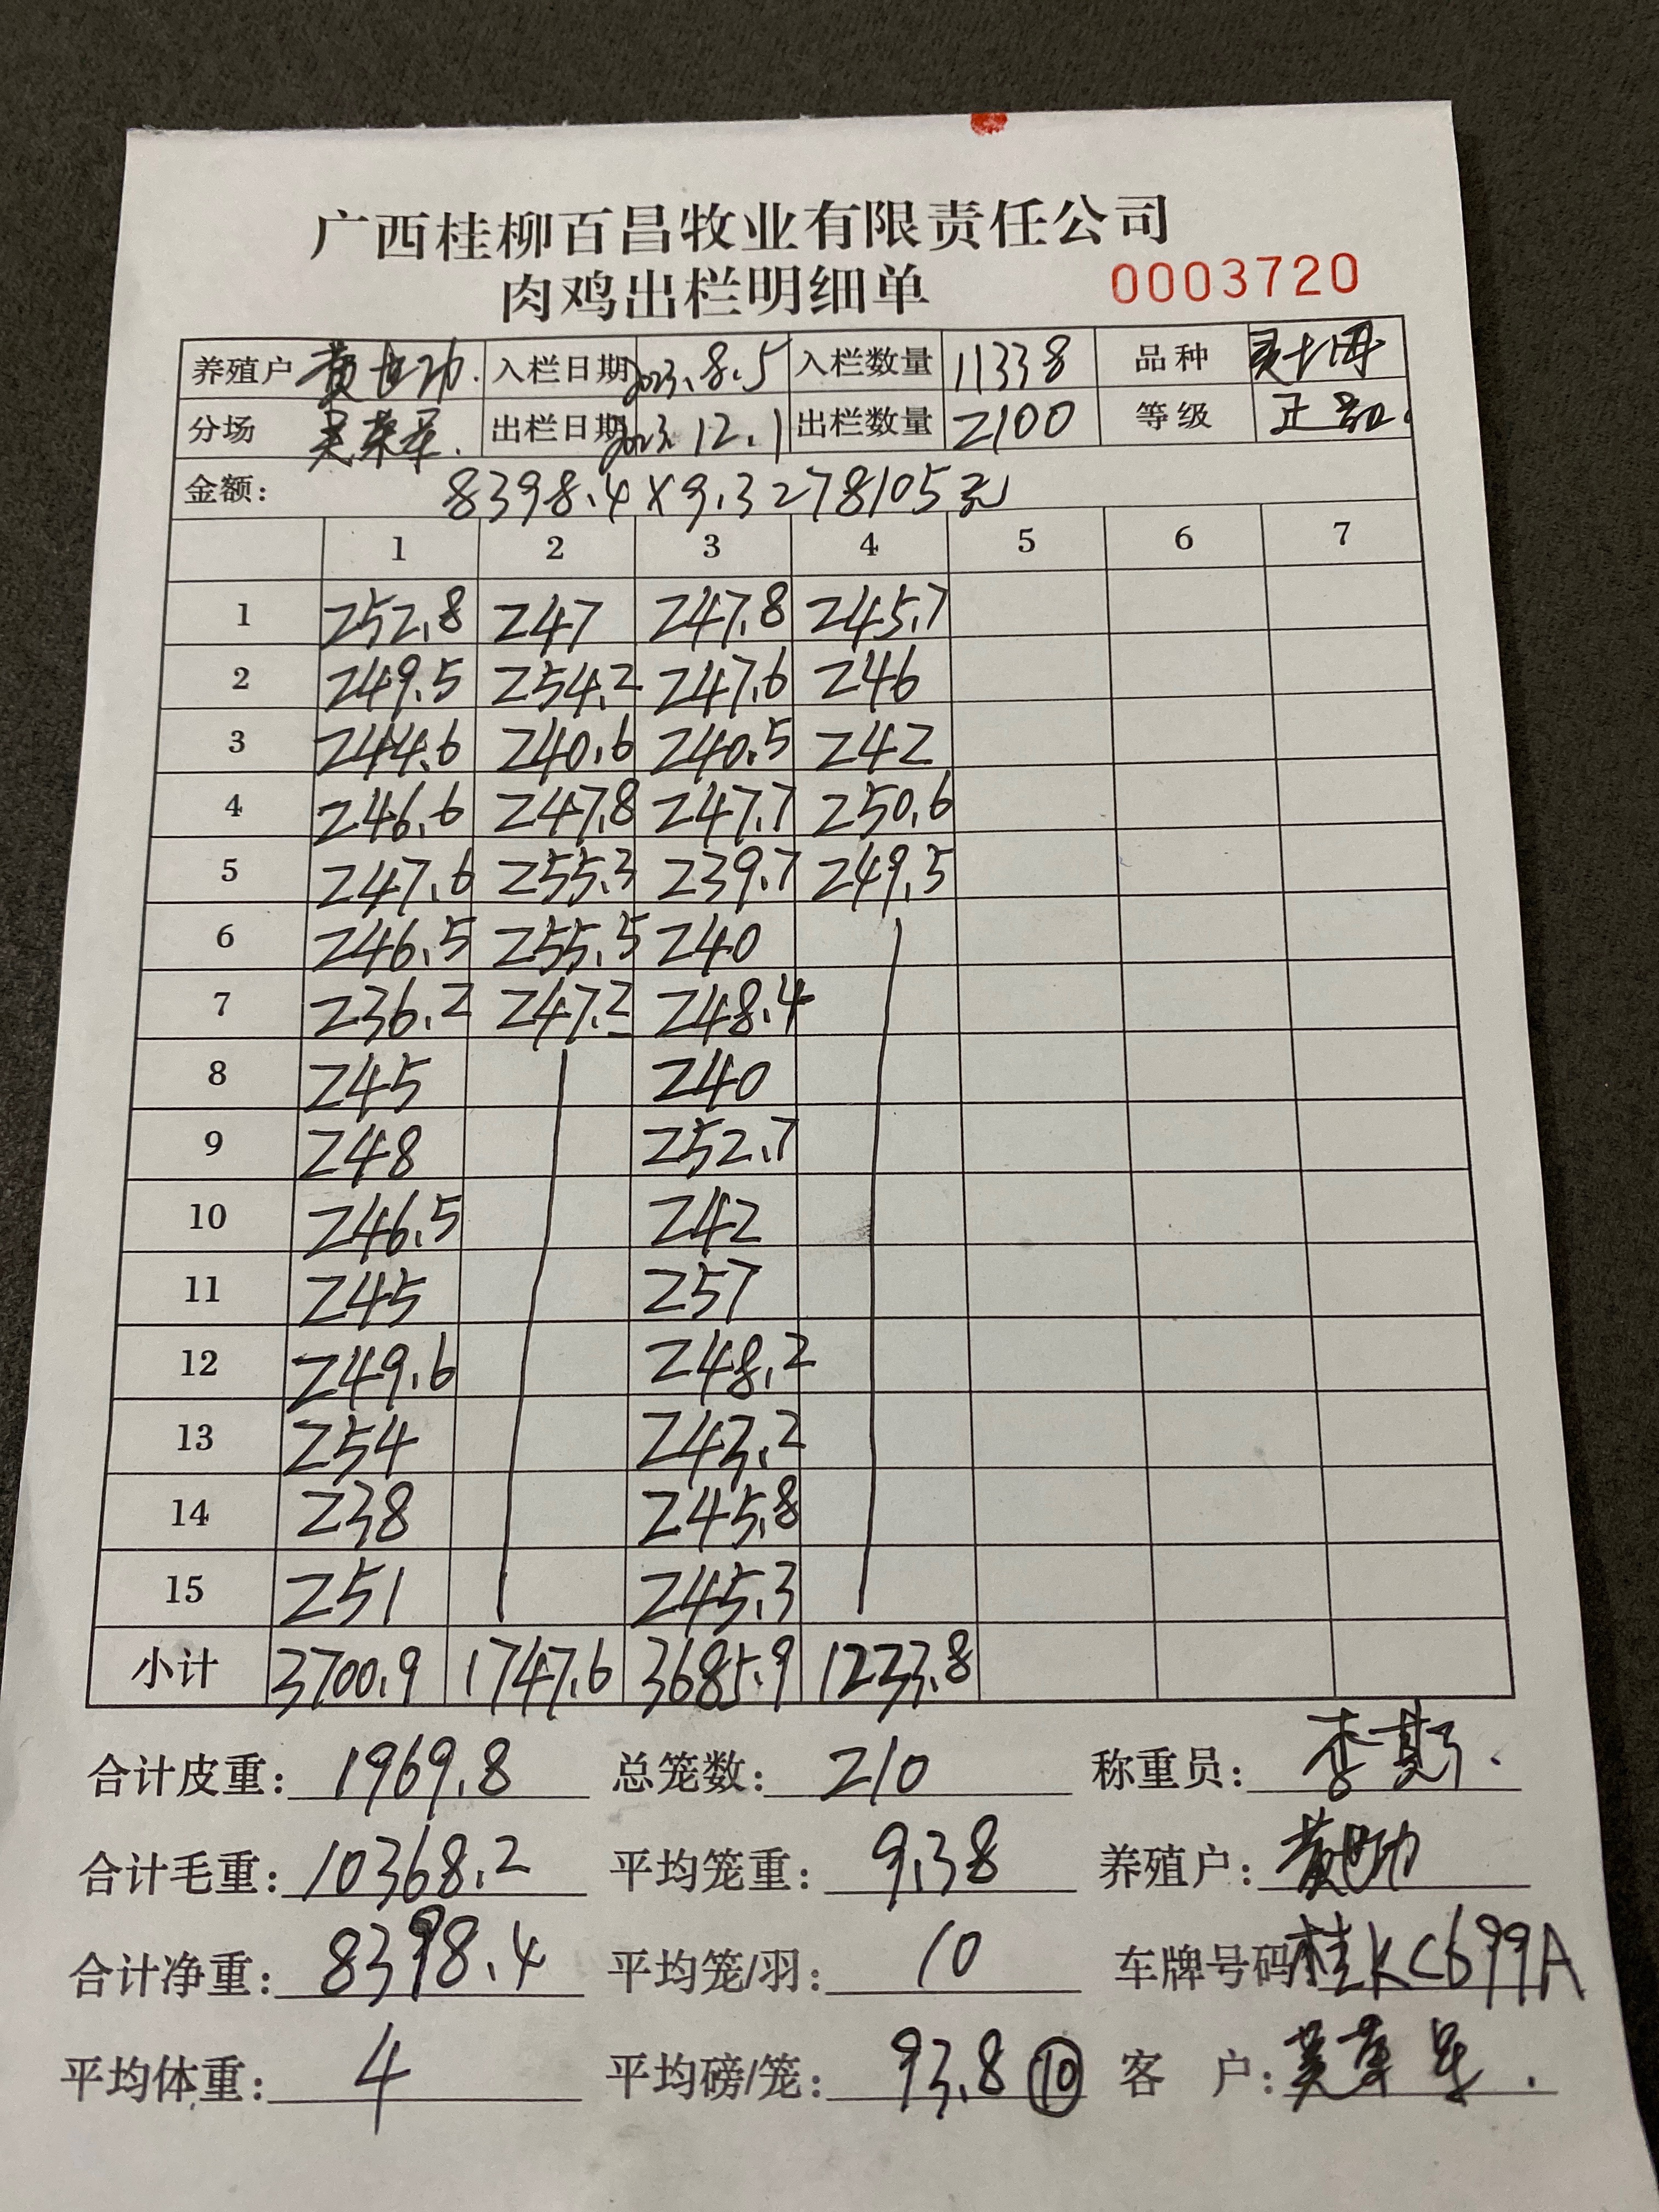 广西桂柳百昌牧业有限责任公司
肉鸡出栏明细单 0003720
养殖户 黄世功. 入栏日期 2023.8.5 入栏数量 11338 品种
分场 出栏日期 2023.12.1 出栏数量 2100 等级 正
金额: 8398.4×9.3 278105元
1 2 3 4 5 6 7
1 252.8 247 247.8 245.7
2 249.5 254.2 247.6 246
3 244.6 240.6 240.5 242
4 246.6 247.8 247.7 250.6
5 247.6 255.3 239.7 249.5
6 246.5 255.5 240
7 236.2 247.2 248.4
8 245 240
9 248 252.7
10 246.5 242
11 245 257
12 249.6 248.2
13 254 243.2
14 238 245.8
15 251 245.3
小计 3700.9 1747.6 3685.9 1233.8
合计皮重: 1969.8 总笼数: 210 称重员: 李
合计毛重: 10368.2 平均笼重: 9.38 养殖户: 黄世功
合计净重: 8398.4 平均笼/羽: 10 车牌号码 桂KC699A
平均体重: 4 平均磅/笼: 93.8 ⑩ 客 户: